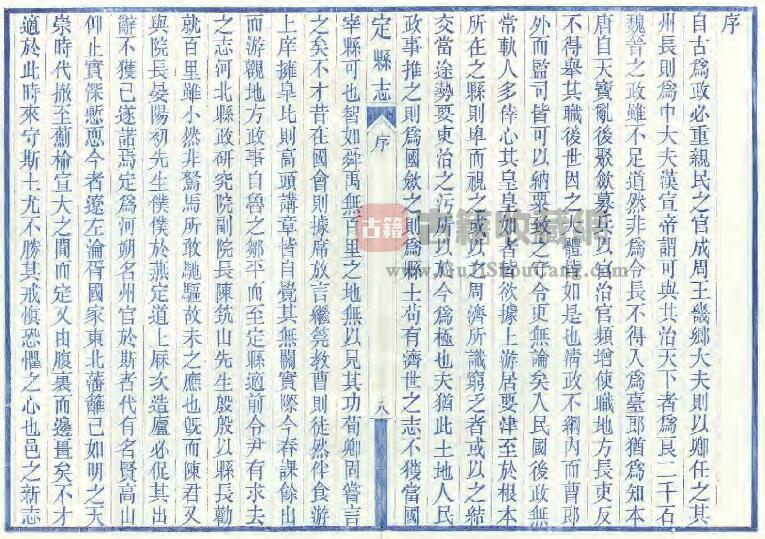 序
自古爲政必重親民之官成周王畿鄉大夫則以卿任之其
州長則爲中大夫漢宣帝謂可與其治天下者爲良二千石
魏晉之政雖不足道然非爲令長不得入爲臺郎猶爲知本
唐自天寶亂後聚斂募兵以官治官類增使職地方長吏反
不得舉其職後世因之大體皆如是也清政不綱內而曹郎
外而監司皆可以納粟致之守令更無論矣入民國後政無
常軌人多倖心其皇皇如者皆欲據上游居要津至於根本
所在之縣則卑而視之或以之周濟所識窮乏者或以之結
交當途勢要吏治之污所以於今爲極也夫猶此土地人民
政事推之則爲國斂之則爲縣士苟有濟世之志不獲當國
定縣志
序
八
宰縣可也智如舜禹無百里之地無以見其功荀卿固嘗言
之矣不才昔在國會則據席放言繼筦教曹則徒然伴食游
上庠擁皐比則高頭講章皆自覺其無關實際今春課餘出
而游觀地方政事自魯之鄒平而至定縣適前令尹有求去
之志河北縣政研究院副院長陳筑山先生殷殷以縣長勸
就百里雖小然非駑馬所敢馳驅故未之應也旣而陳君又
與院長晏陽初先生僕僕於燕定道上麻次造廬必促其出
辭不獲已遂諾焉定爲河朔名州官於斯者代有名賢高山
仰止實深慙恧今者遼左淪胥國家東北藩籬已如明之天
崇時代撤至薊榆宣大之間而定又由腹裏而邊畺矣不才
適於此時來守斯土尤不勝其戒愼恐懼之心也邑之新志
古籍
古籍收藏網
www.GuJiShouCang.com